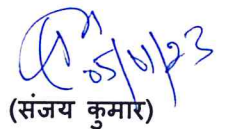 05/01/23
(संजय कुमार)